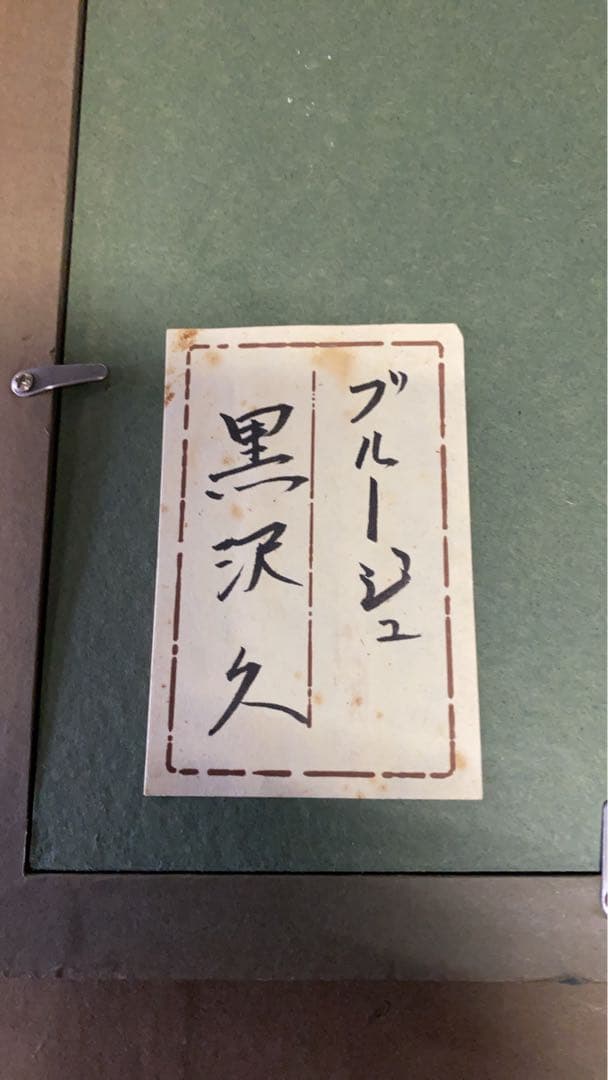 ブルージュ
黒沢久